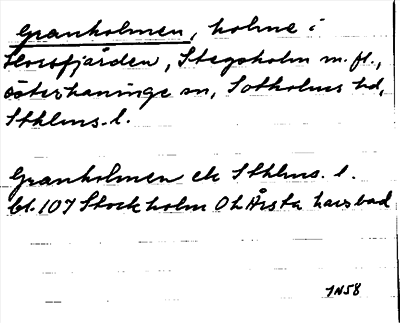 Granholmen, holme i
Horsfjärden, Stegsholm m. fl.,
Österhaninge sn, Sotholms hd,
Sthlms. l.
Granholmen ek Sthlms. l.
bl. 107 Stockholm OL Årsta havsbad
1N58